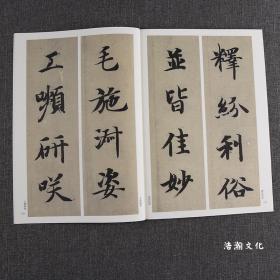 釋紛利俗
並皆佳妙
毛施淑姿
工嚬研咲
浩瀚文化